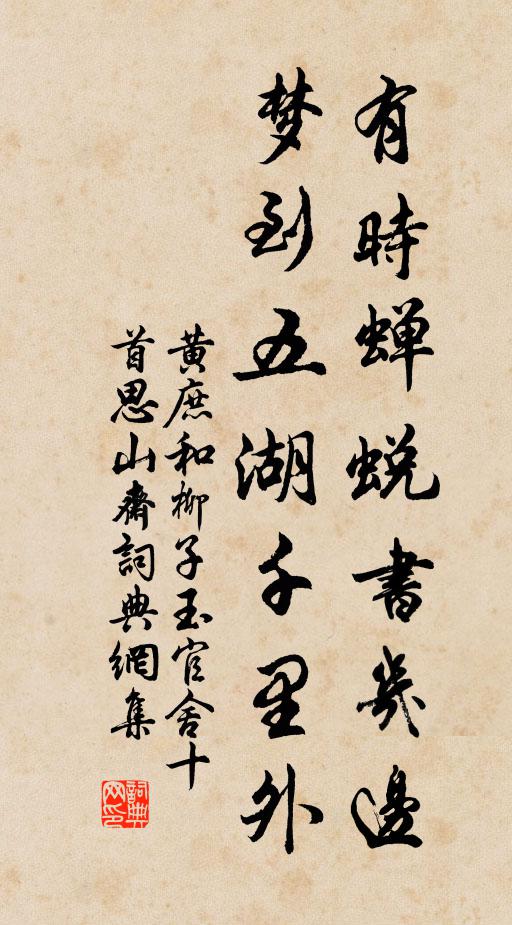 有時蝉蜕書幾邊
梦到五湖千里外
黄庶和柳子玉官舍十
首思山齋詞典網集
詞典网印